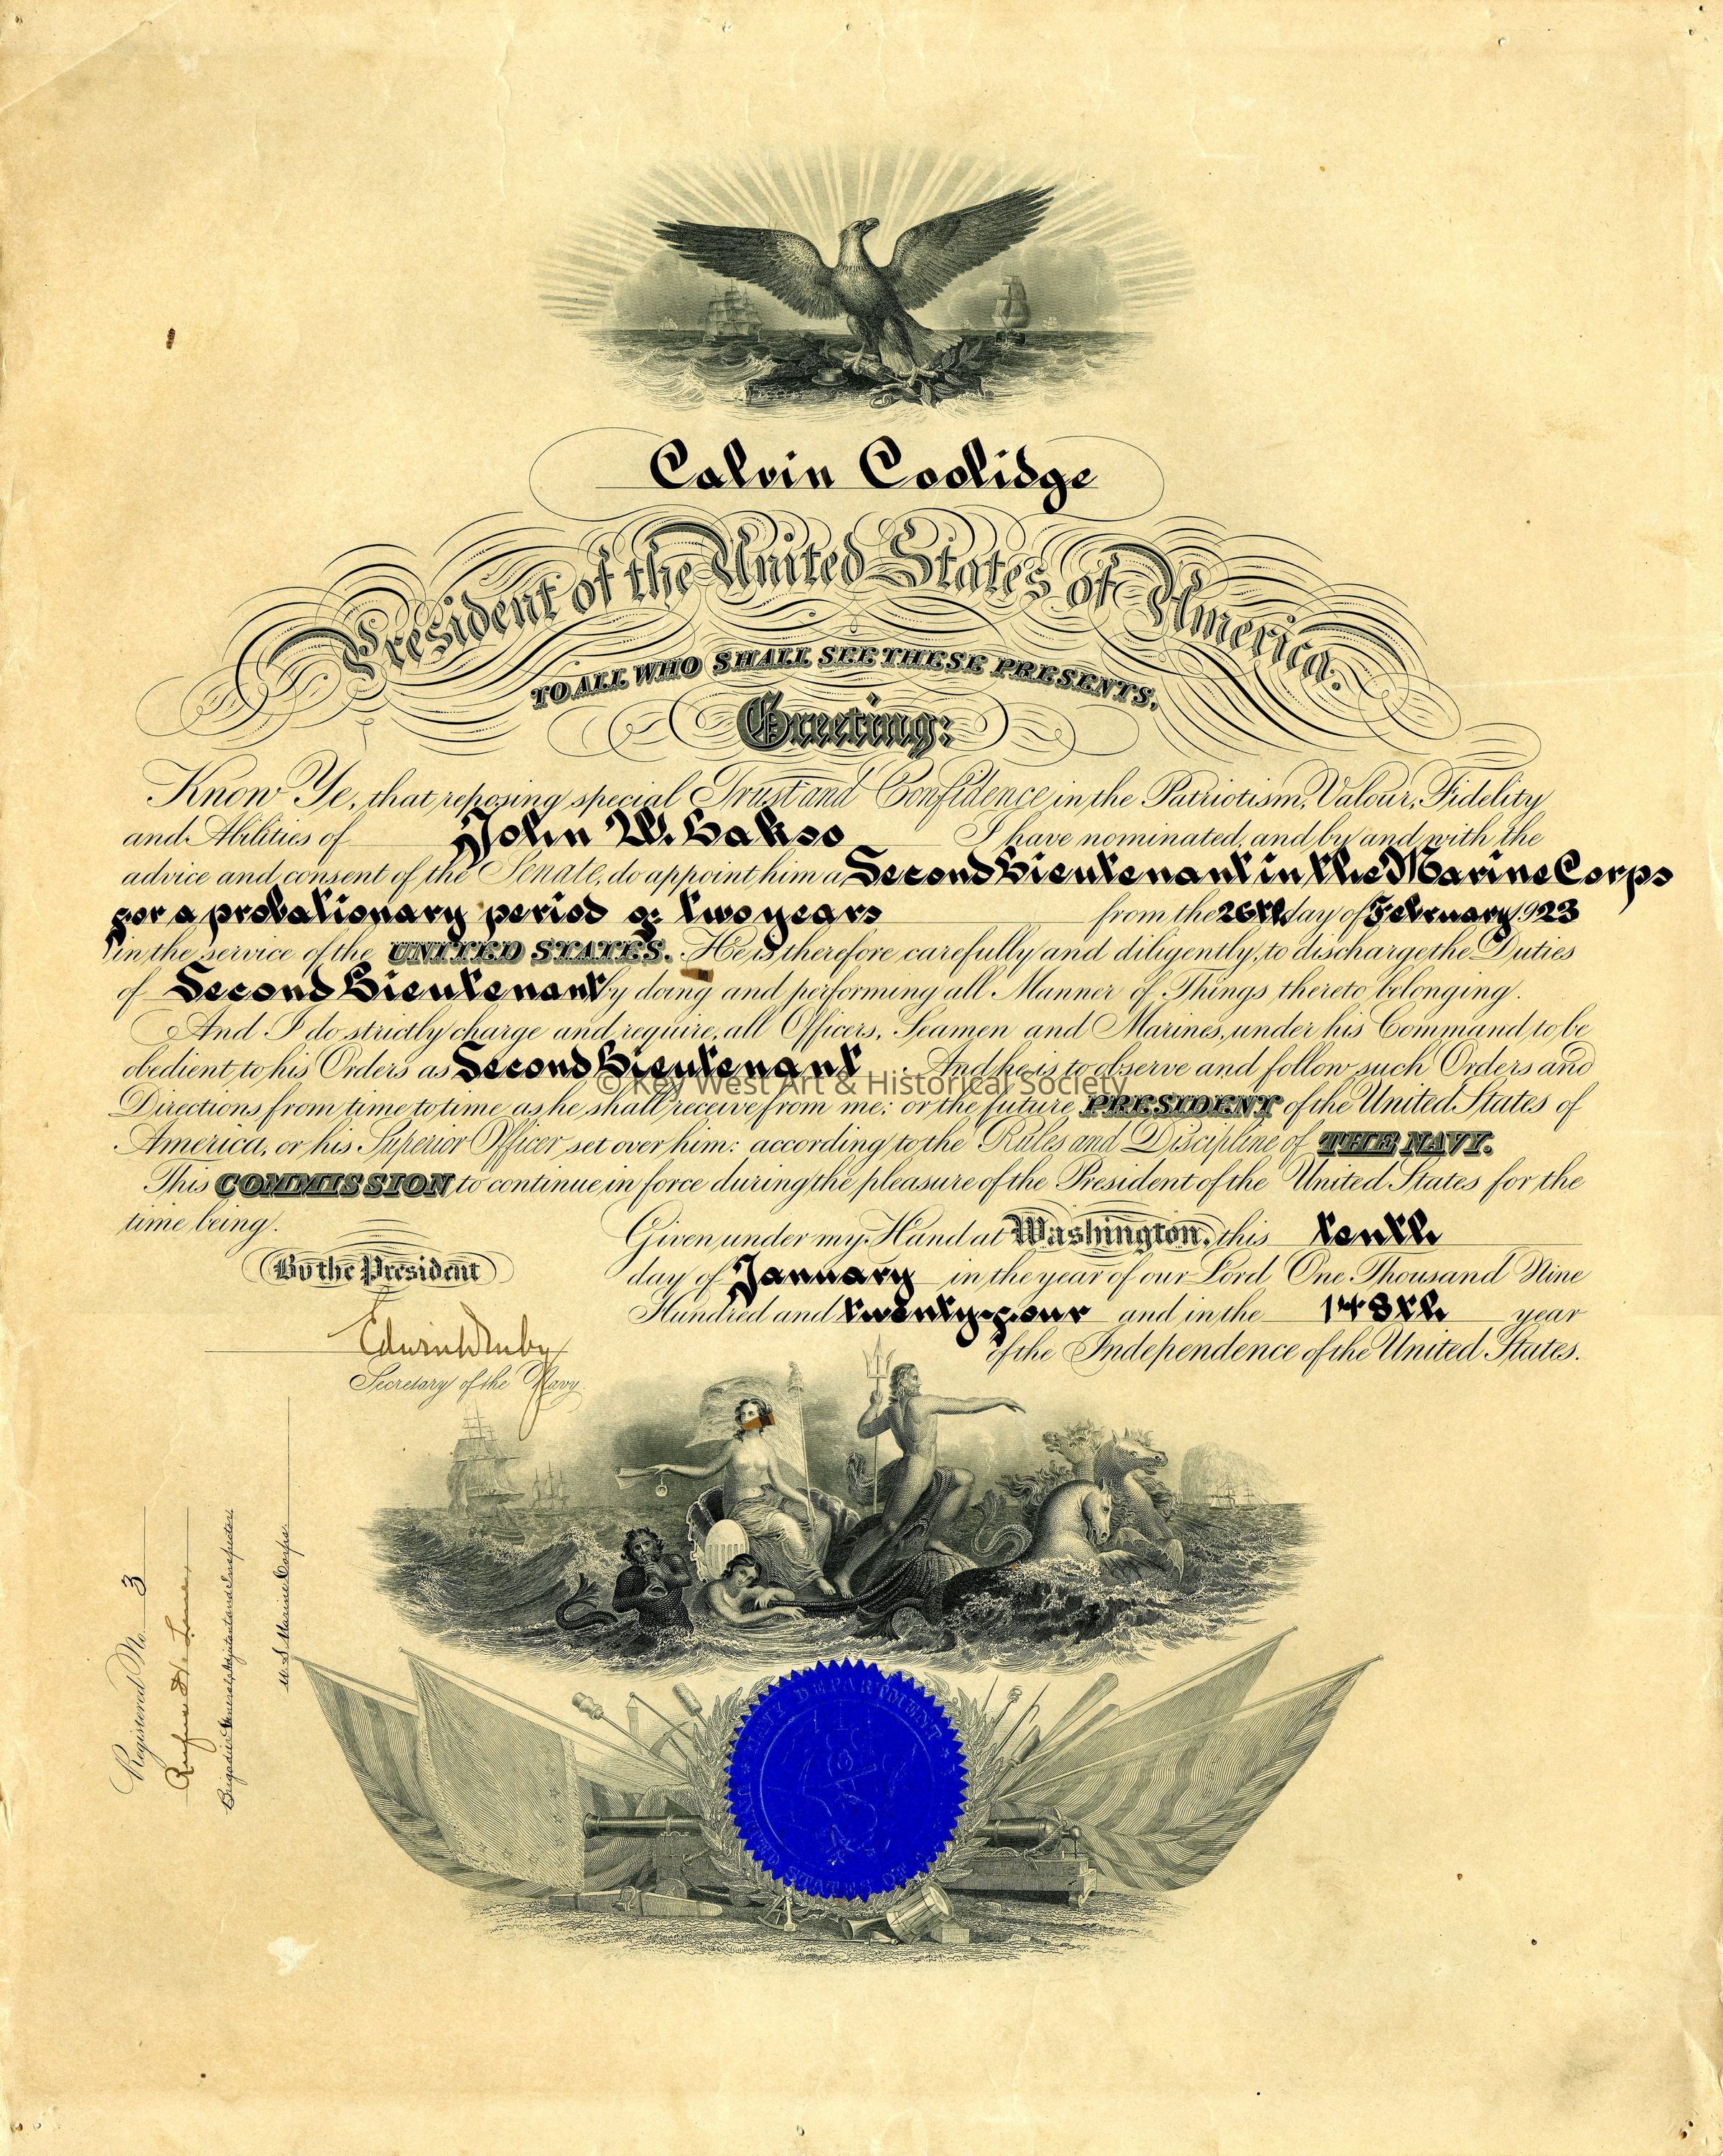 Calvin Coolidge
President of the United States of America.
TO ALL WHO SHALL SEE THESE PRESENTS,
Greeting:
Know Ye, that reposing special Trust and Confidence in the Patriotism, Valour, Fidelity
and Abilities of John W. Lakso I have nominated, and by and with the
advice and consent of the Senate, do appoint him a Second Lieutenant in the Marine Corps
for a probationary period of two years from the 26th day of February 1923
in the service of the UNITED STATES. He is therefore carefully and diligently, to discharge the Duties
of Second Lieutenant by doing and performing all Manner of Things thereto belonging.
And I do strictly charge and require, all Officers, Seamen and Marines, under his Command to be
obedient to his Orders as Second Lieutenant. And he is to observe and follow such Orders and
© Key West Art & Historical Society
Directions from time to time as he shall receive from me; or the future PRESIDENT of the United States of
America, or his Superior Officer set over him: according to the Rules and Discipline of THE NAVY.
This COMMISSION to continue in force during the pleasure of the President of the United States for the
time being.
Given under my Hand at Washington, this tenth
day of January in the year of our Lord One Thousand Nine
Hundred and twenty-four and in the 148th year
of the Independence of the United States.
By the President
Edwin Denby
Secretary of the Navy.
Registered No. 3
Rufus H. Lane
Brigadier General, Adjutant and Inspector,
U.S. Marine Corps.
NAVY DEPARTMENT
UNITED STATES OF